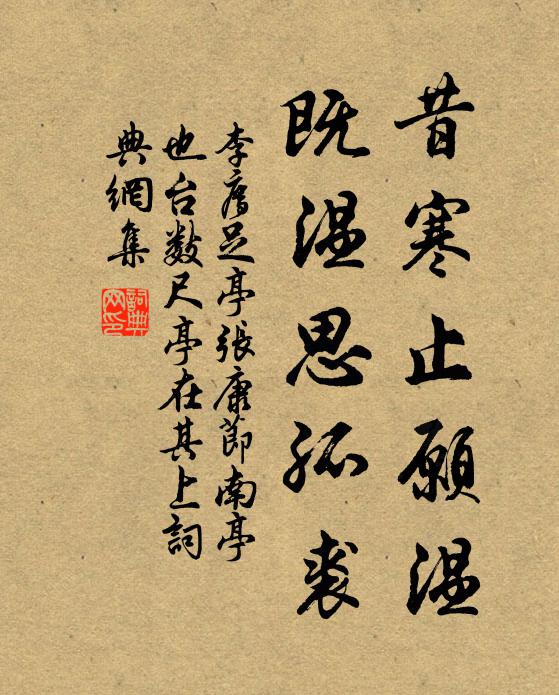 昔寒止願温
既温思狐裘
李廌足亭張康節南亭
也台数尺亭在其上詞
典網集
詞典
网印